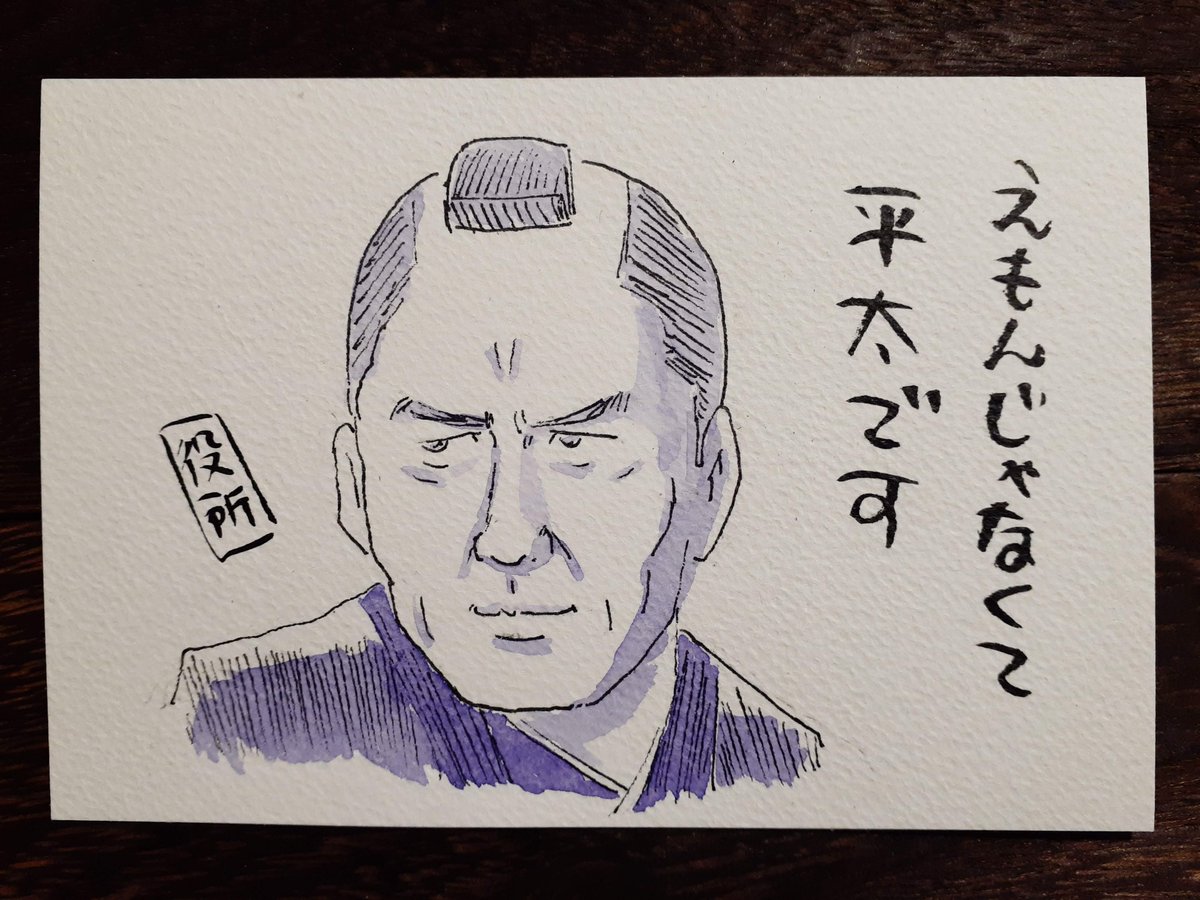 えもんじゃなくて
平太です
役所